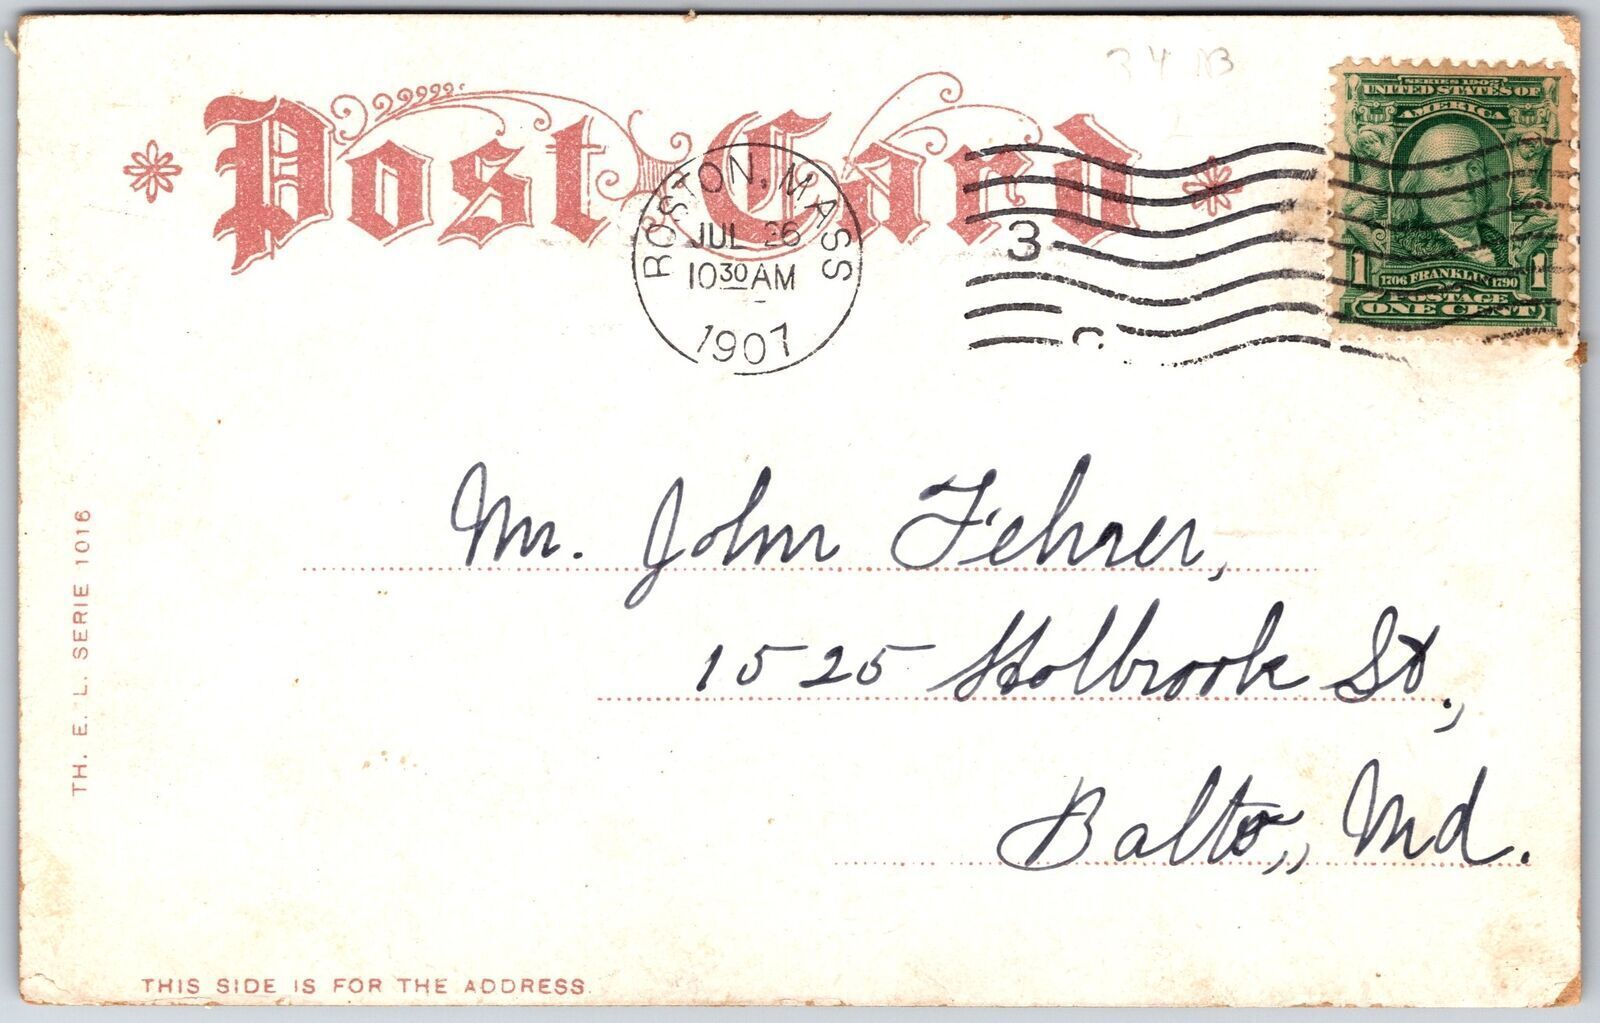 Post Card
BOSTON, MASS
JUL 26
10 30 AM
1907
3
SERIES 1902
UNITED STATES OF
AMERICA
1 1706 FRANKLIN 1790 1
POSTAGE
ONE CENT
Mr. John Fehrer,
1525 Holbrook St.,
Balto., Md.
TH. E. L. SERIE 1016
THIS SIDE IS FOR THE ADDRESS.